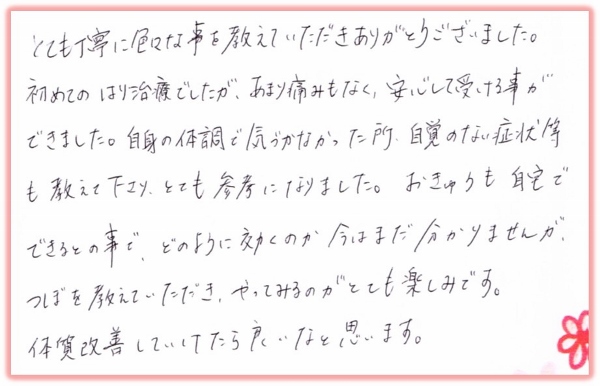 とても丁寧に色々な事を教えていただきありがとうございました。
初めてのはり治療でしたが、あまり痛みもなく、安心して受ける事が
できました。自身の体調で気づかなかった所、自覚のない症状等
も教えて下さり、とても参考になりました。おきゅうも自宅で
できるとの事で、どのように効くのか今はまだ分かりませんが、
つぼを教えていただき、やってみるのがとても楽しみです。
体質改善していけたら良いなと思います。